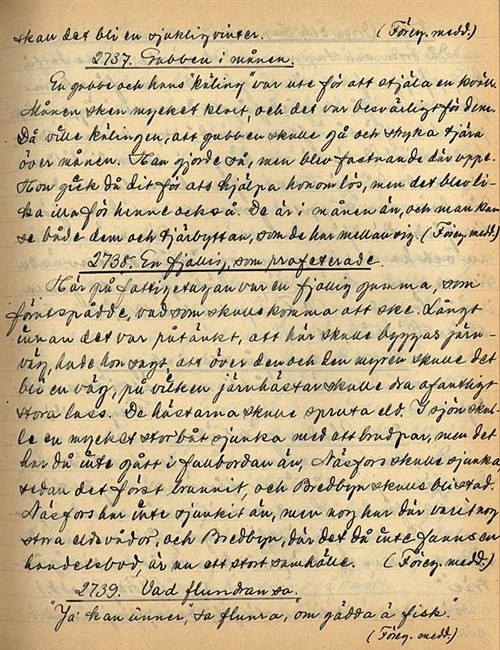 skan det bli en sjukligvinter. (Föreg. medd.)
2737. Gubben i månen.
En gubbe och hans "käling" var ute för att stjäla en kväll.
Månen sken mycket klart, och det var besvärligt för dem.
Då ville kälingen, att gubben skulle gå och stryka tjära
över månen. Han gjorde så, men blev fastnande där uppe.
Hon gick då dit för att hjälpa honom lös, men det blev li-
ka illa för henne också. De är i månen än, och man kan
se både dem och tjärbyttan, som de har mellan sig. (Föreg. medd.)
2738. En fjallig, som profeterade.
Här på fattigstugan var en fjallig gumma, som
förutspådde, vad som skulle komma att ske. Långt
innan det var påtänkt, att här skulle byggas järn-
väg, hade hon sagt att över den och den myren skulle det
bli en väg, på vilken järnhästar skulle dra ofantligt
stora lass. De hästarna skulle spruta eld. I sjön skul-
le en mycket stor båt sjunka med ett brudpar, men det
har då inte gått i fullbordan än, Näsfors skulle sjunka
sedan det först brunnit, och Bredbyn skulle bli stad.
Näsfors har inte sjunkit än, men nog har där varit nog
stora eldsvådor, och Bredbyn, där det då inte fanns en
handelsbod, är nu ett stort samhälle. (Föreg. medd.)
2739. Vad flundran sa.
"Ja kan unner", sa flunra, "om gädda ä fisk".
(Föreg. medd.)